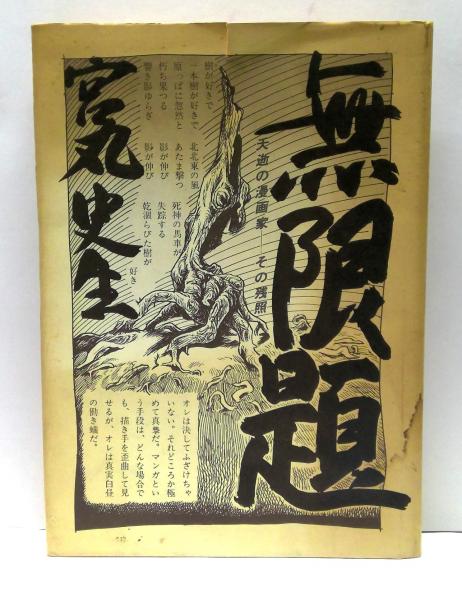 無限題
夭逝の漫画家──その残照
宮丸史生
樹が好きで
一本樹が好きで　北北東の風
原っぱに忽然と　あたま撃つ　死神の馬車が
朽ち果つる　影が伸び　失踪する
響き影ゆらぎ　影が伸び　乾涸らびた樹が
好き
オレは決してふざけちゃ
いない。それどころか極
めて真摯だ。マンガとい
う手段は、どんな場合で
も、描き手を歪曲して見
せるが、オレは真実白昼
の働き蟻だ。